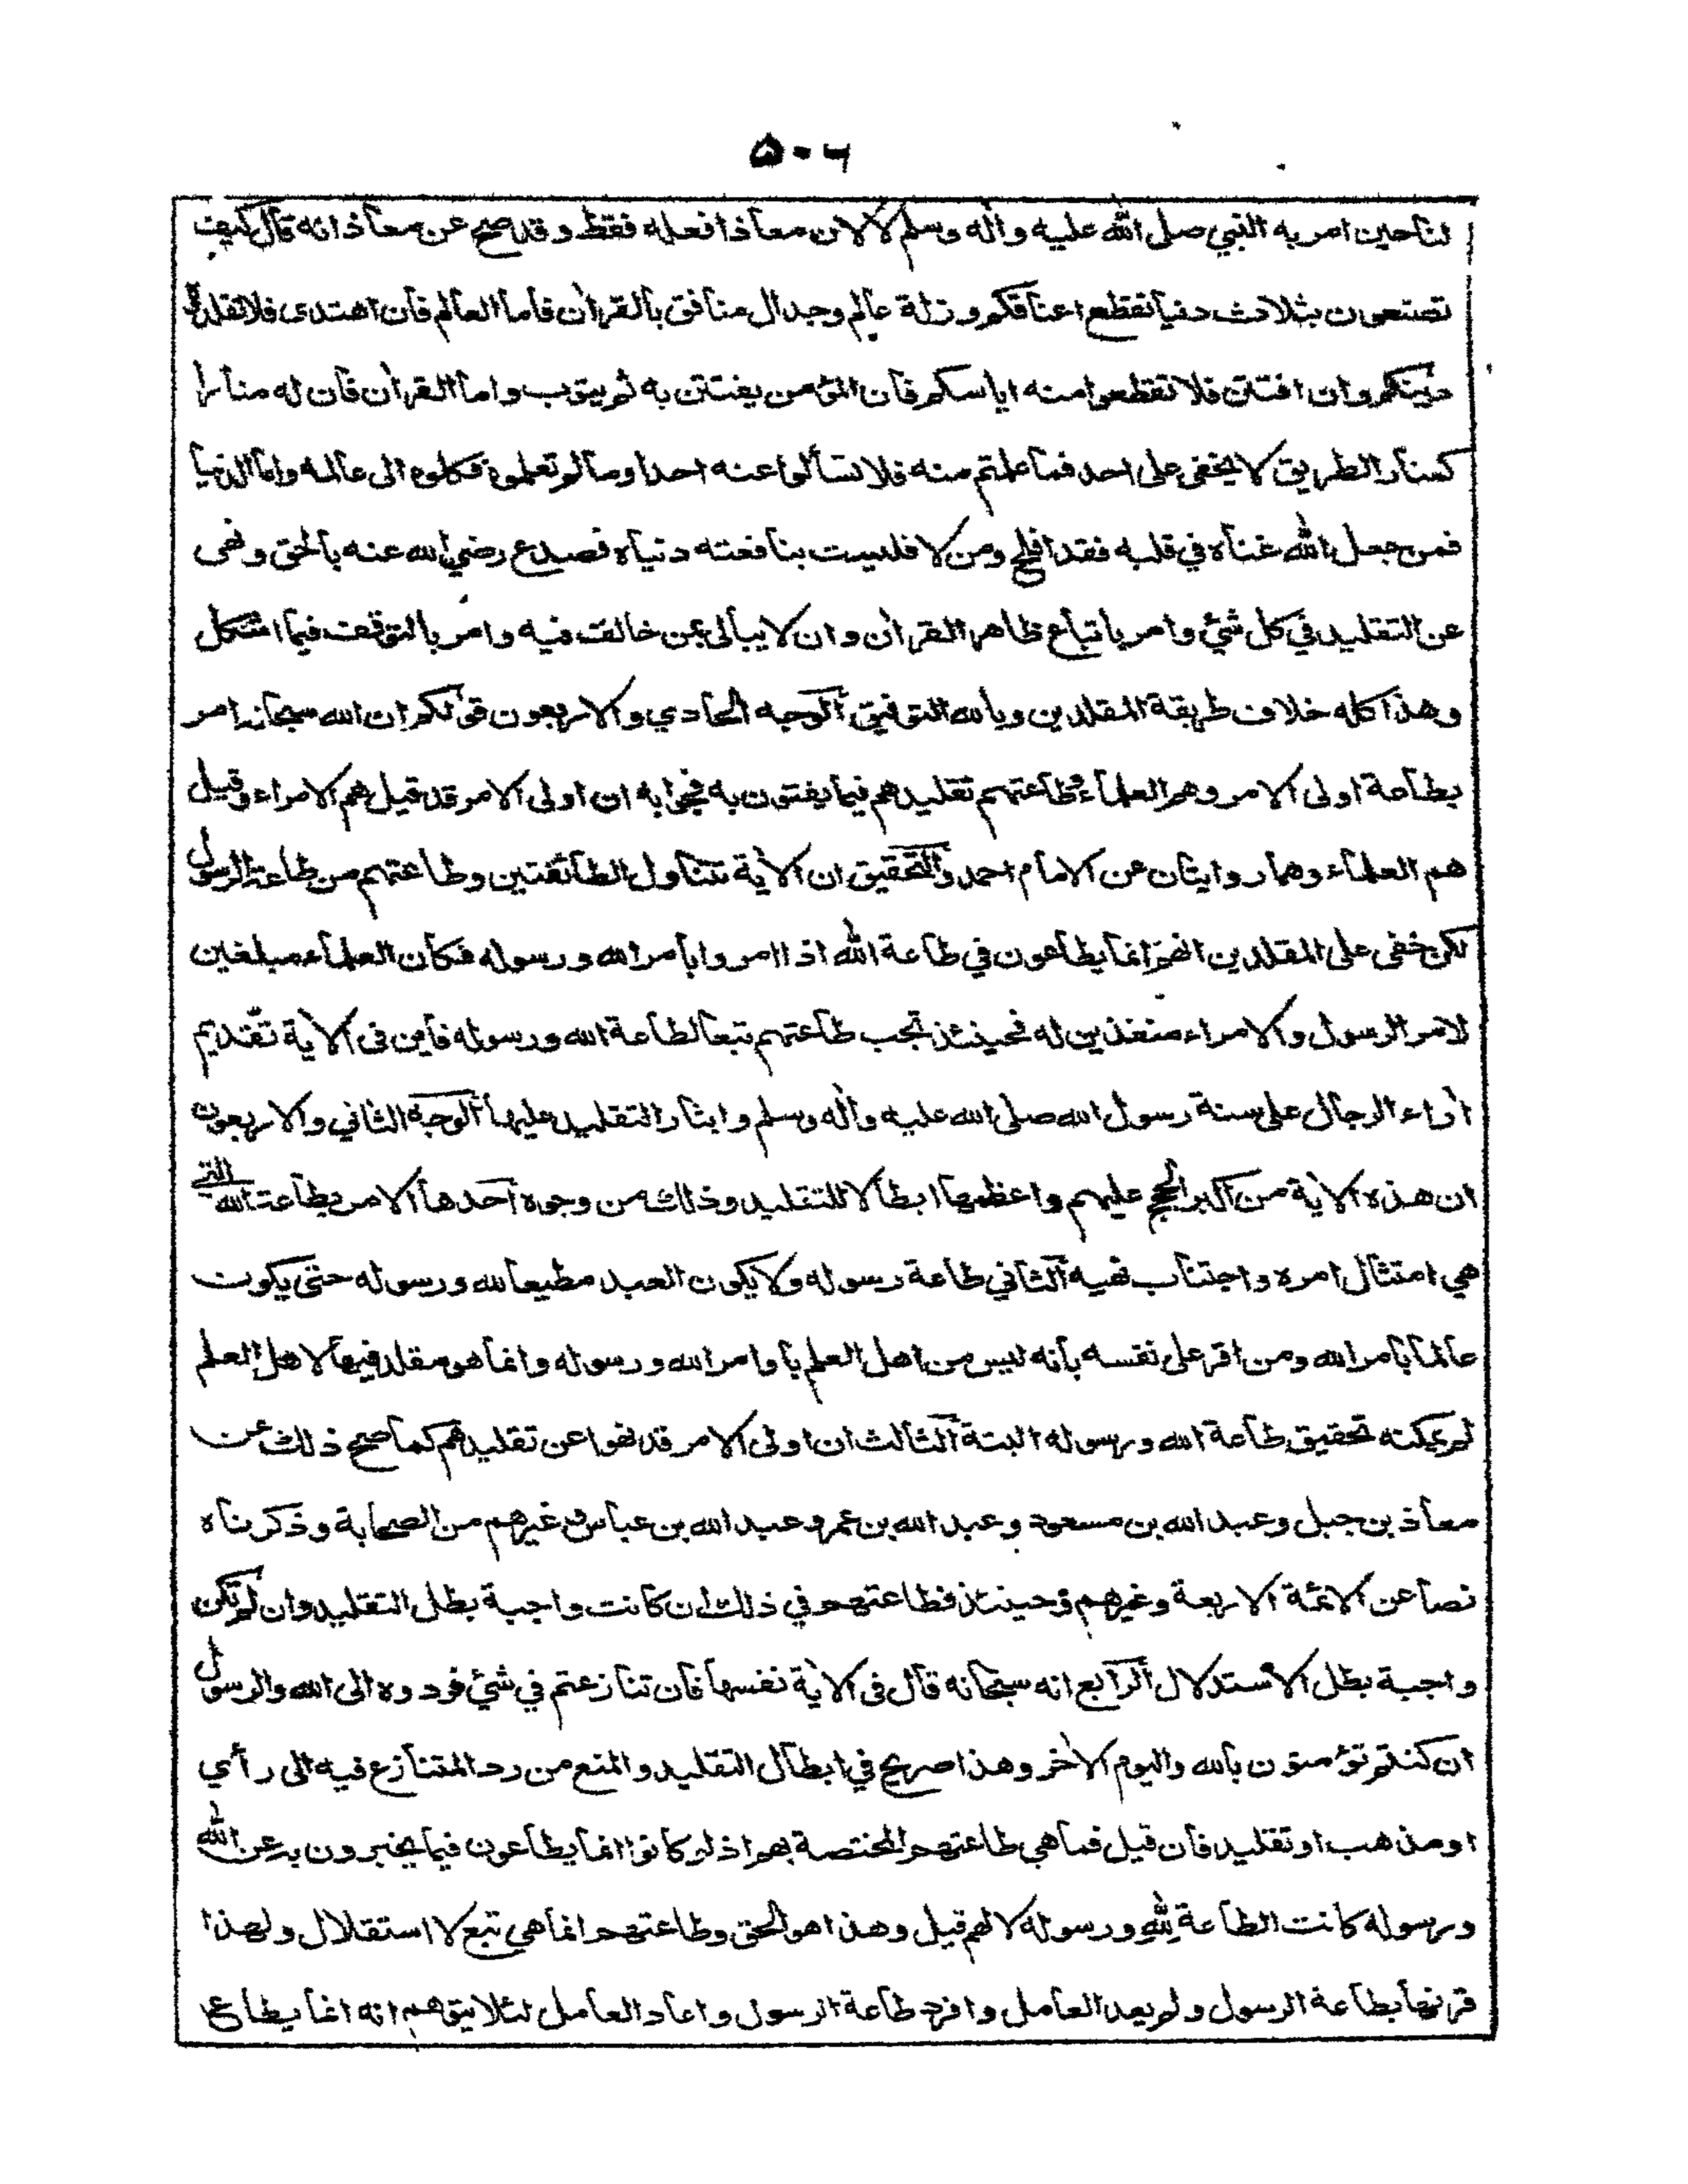 ۵۰۶
لنا حين امر به النبي صلى الله عليه واله وسلم لا لان معاذا فعله فقط وقد صح عن معاذ انه قال كيف
تصنعون بثلاث دنيا تقطع اعناقكم وزلة عالم وجدال منافق بالقران فاما العالم فان اهتدى فلا تقلدوه
دينكم وان افتتن فلا تقطعوا منه اياسكم فان المؤمن يفتتن به ثم يتوب واما القران فان له منارا
كمنار الطريق لا يخفى على احد فما علمتم منه فلا تسألوا عنه احدا وما لم تعلموه فكلوه الى عالمه واما الدنيا
فمن جعل الله غناه في قلبه فقد افلح ومن لا فليست بنافعته دنياه فصدع رضي الله عنه بالحق ونهى
عن التقليد في كل شئ وامر باتباع ظاهر القران وان لا يبالى بمن خالف فيه وامر بالتوقف فيما اشكل
وهذا كله خلاف طريقة المقلدين وبالله التوفيق الوجه الحادي والاربعون قولكم ان الله سبحانه امر
بطاعة اولى الامر وهم العلماء وطاعتهم تقليدهم فيما يفتون به فجوابه ان اولى الامر قد قيل هم الامراء وقيل
هم العلماء وهما روايتان عن الامام احمد والتحقيق ان الاية تتناول الطائفتين وطاعتهم من طاعة الرسول
لكن خفى على المقلدين انهم انما يطاعون في طاعة الله اذا امروا بامر الله ورسوله فكان العلماء مبلغين
لامر الرسول والامراء منفذين له فحينئذ تجب طاعتهم تبعا لطاعة الله ورسوله فاين فى الاية تقديم
اراء الرجال على سنة رسول الله صلى الله عليه واله وسلم وايثار التقليد عليها الوجه الثاني والاربعون
ان هذه الاية من اكبر الحجج عليهم واعظمها ابطالا للتقليد وذلك من وجوه احدها الامر بطاعة الله التي
هي امتثال امره واجتناب نهيه الثاني طاعة رسوله ولا يكون العبد مطيعا لله ورسوله حتى يكون
عالما بامر الله ومن اقر على نفسه بانه ليس من اهل العلم باوامر الله ورسوله وانما هو مقلد فيها لاهل العلم
لم يمكنه تحقيق طاعة الله ورسوله البتة الثالث ان اولى الامر قد نهوا عن تقليدهم كما صح ذلك عن
معاذ بن جبل وعبد الله بن مسعود وعبد الله بن عمر وعبد الله بن عباس وغيرهم من الصحابة وذكرناه
نصا عن الائمة الاربعة وغيرهم وحينئذ فطاعتهم في ذلك ان كانت واجبة بطل التقليد وان لم تكن
واجبة بطل الاستدلال الرابع انه سبحانه قال فى الاية نفسها فان تنازعتم في شئ فردوه الى الله والرسول
ان كنتم تؤمنون بالله واليوم الاخر وهذا صريح في ابطال التقليد والمنع من رد المتنازع فيه الى رأي
او مذهب او تقليد فان قيل فما هي طاعتهم المختصة بهم اذ لو كانوا انما يطاعون فيما يخبرون به عن الله
ورسوله كانت الطاعة لله ورسوله لا لهم قيل وهذا هو الحق وطاعتهم انما هي تبع لا استقلال ولهذا
قرنها بطاعة الرسول ولم يعد العامل وافرد طاعة الرسول واعاد العامل لئلا يتوهم انه انما يطاع